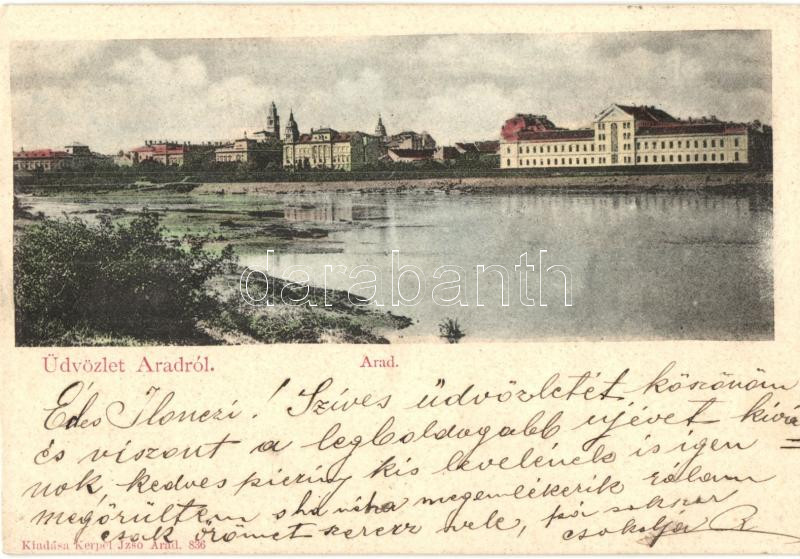 darabanth
Üdvözlet Aradról.
Arad.
Édes Ilonczi! Szíves üdvözletét köszönöm
és viszont a legboldogabb ujévet kívá=
nok, kedves picziny kis levelének is igen
megörültem s ha néha megemlékezik rólam
csak örömet szerez vele, pár sokszor
csókolja
Kiadása Kerpel Izsó Arad. 836